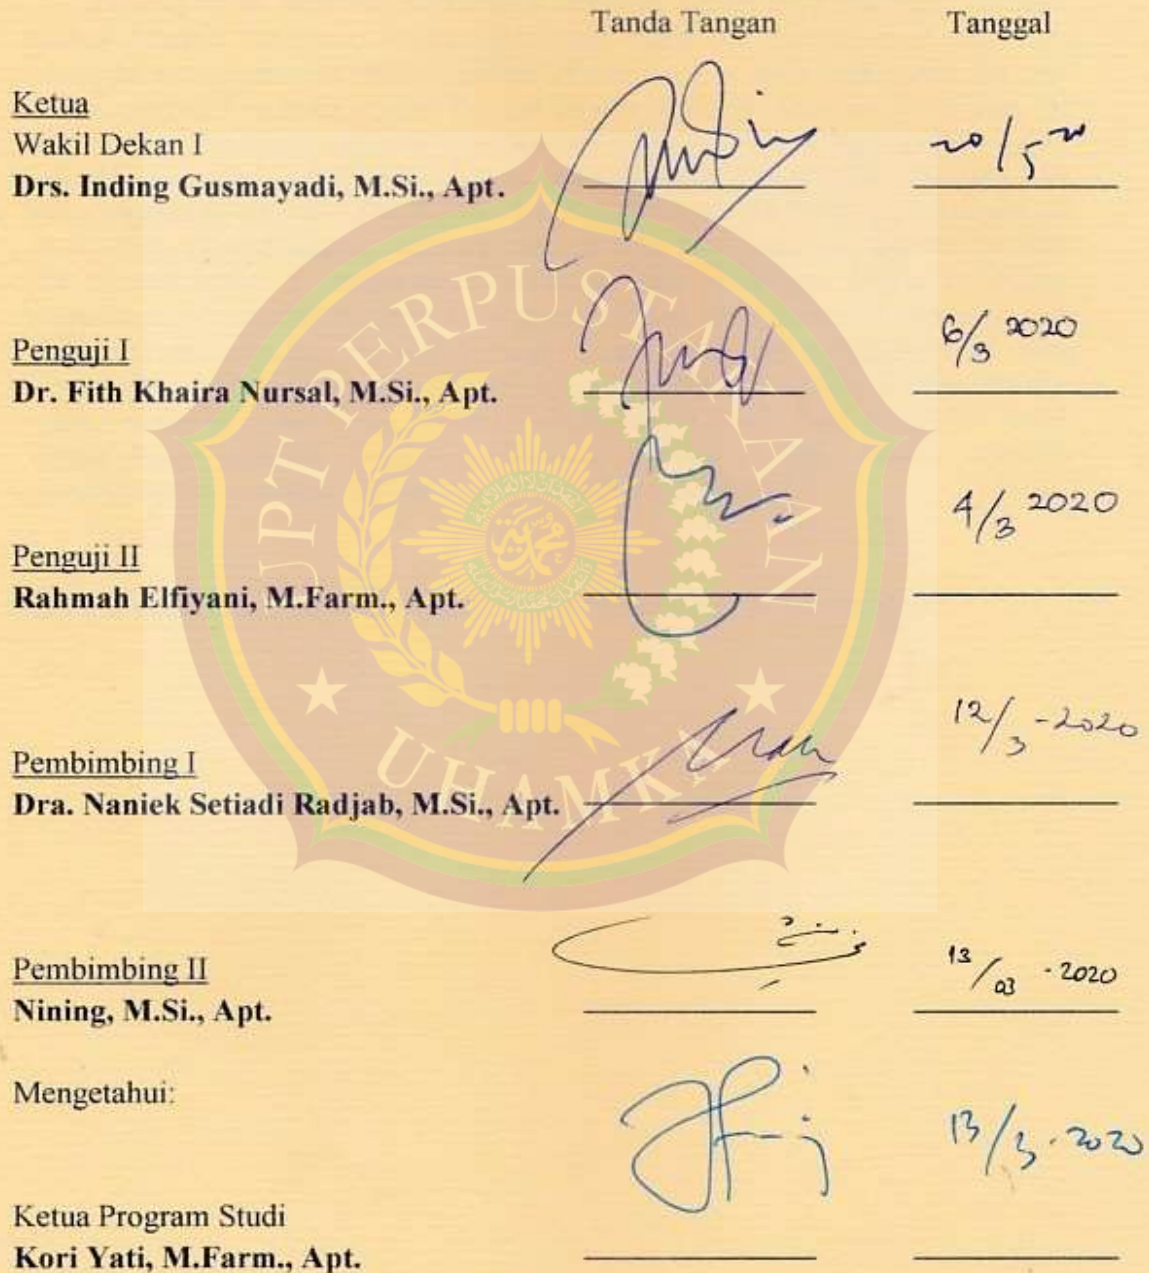 Tanda Tangan Tanggal
Ketua
Wakil Dekan I
Drs. Inding Gusmayadi, M.Si., Apt. 20/5 20
Penguji I
Dr. Fith Khaira Nursal, M.Si., Apt. 6/3 2020
Penguji II
Rahmah Elfiyani, M.Farm., Apt. 4/3 2020
Pembimbing I
Dra. Naniek Setiadi Radjab, M.Si., Apt. 12/3 - 2020
Pembimbing II
Nining, M.Si., Apt. 13/03 - 2020
Mengetahui:
Ketua Program Studi
Kori Yati, M.Farm., Apt. 13/3 - 2020
UPT PERPUSTAKAAN
UHAMKA